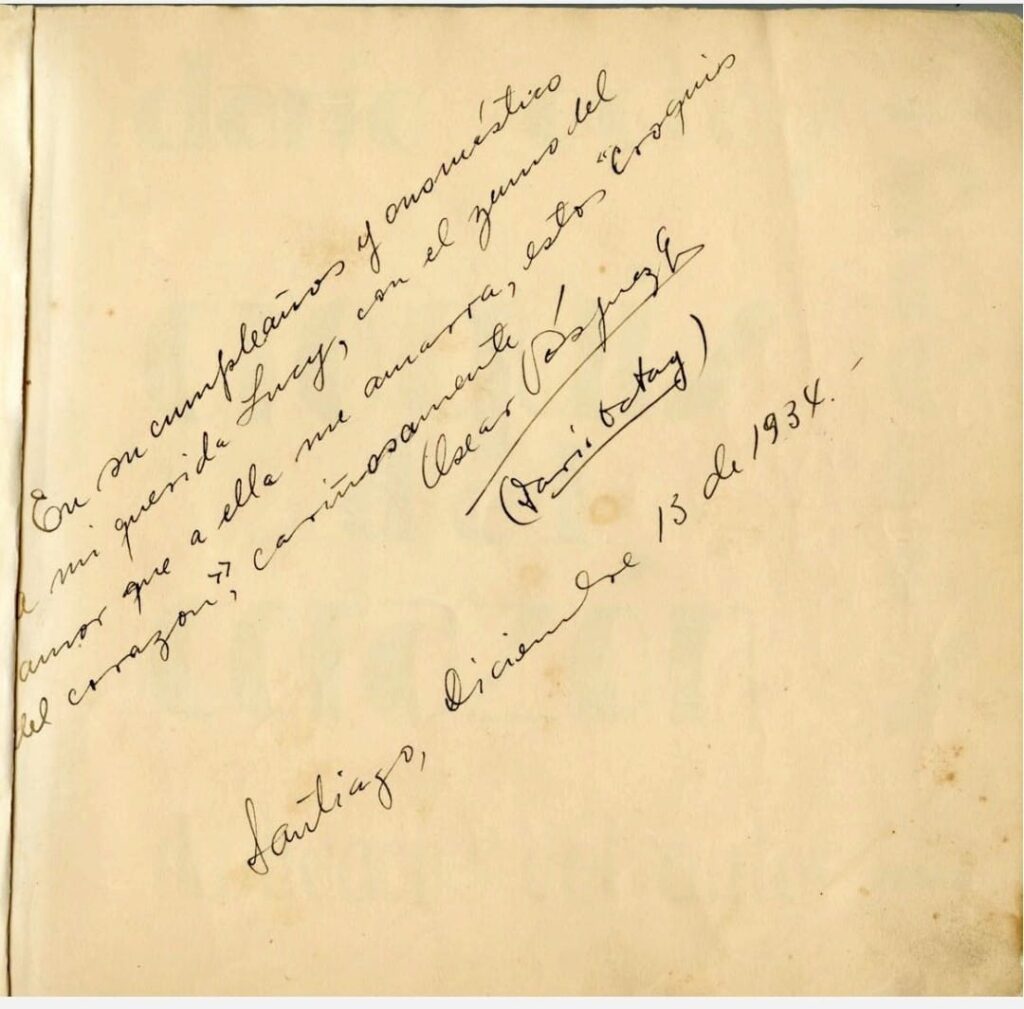 En su cumpleaños y onomástico
a mi querida Lucy, con el zumo del
amor que a ella me amarra, estos "Croquis
del corazón", cariñosamente
Oscar Vásquez
(Darío Octay)
Santiago, diciembre 13 de 1934.-